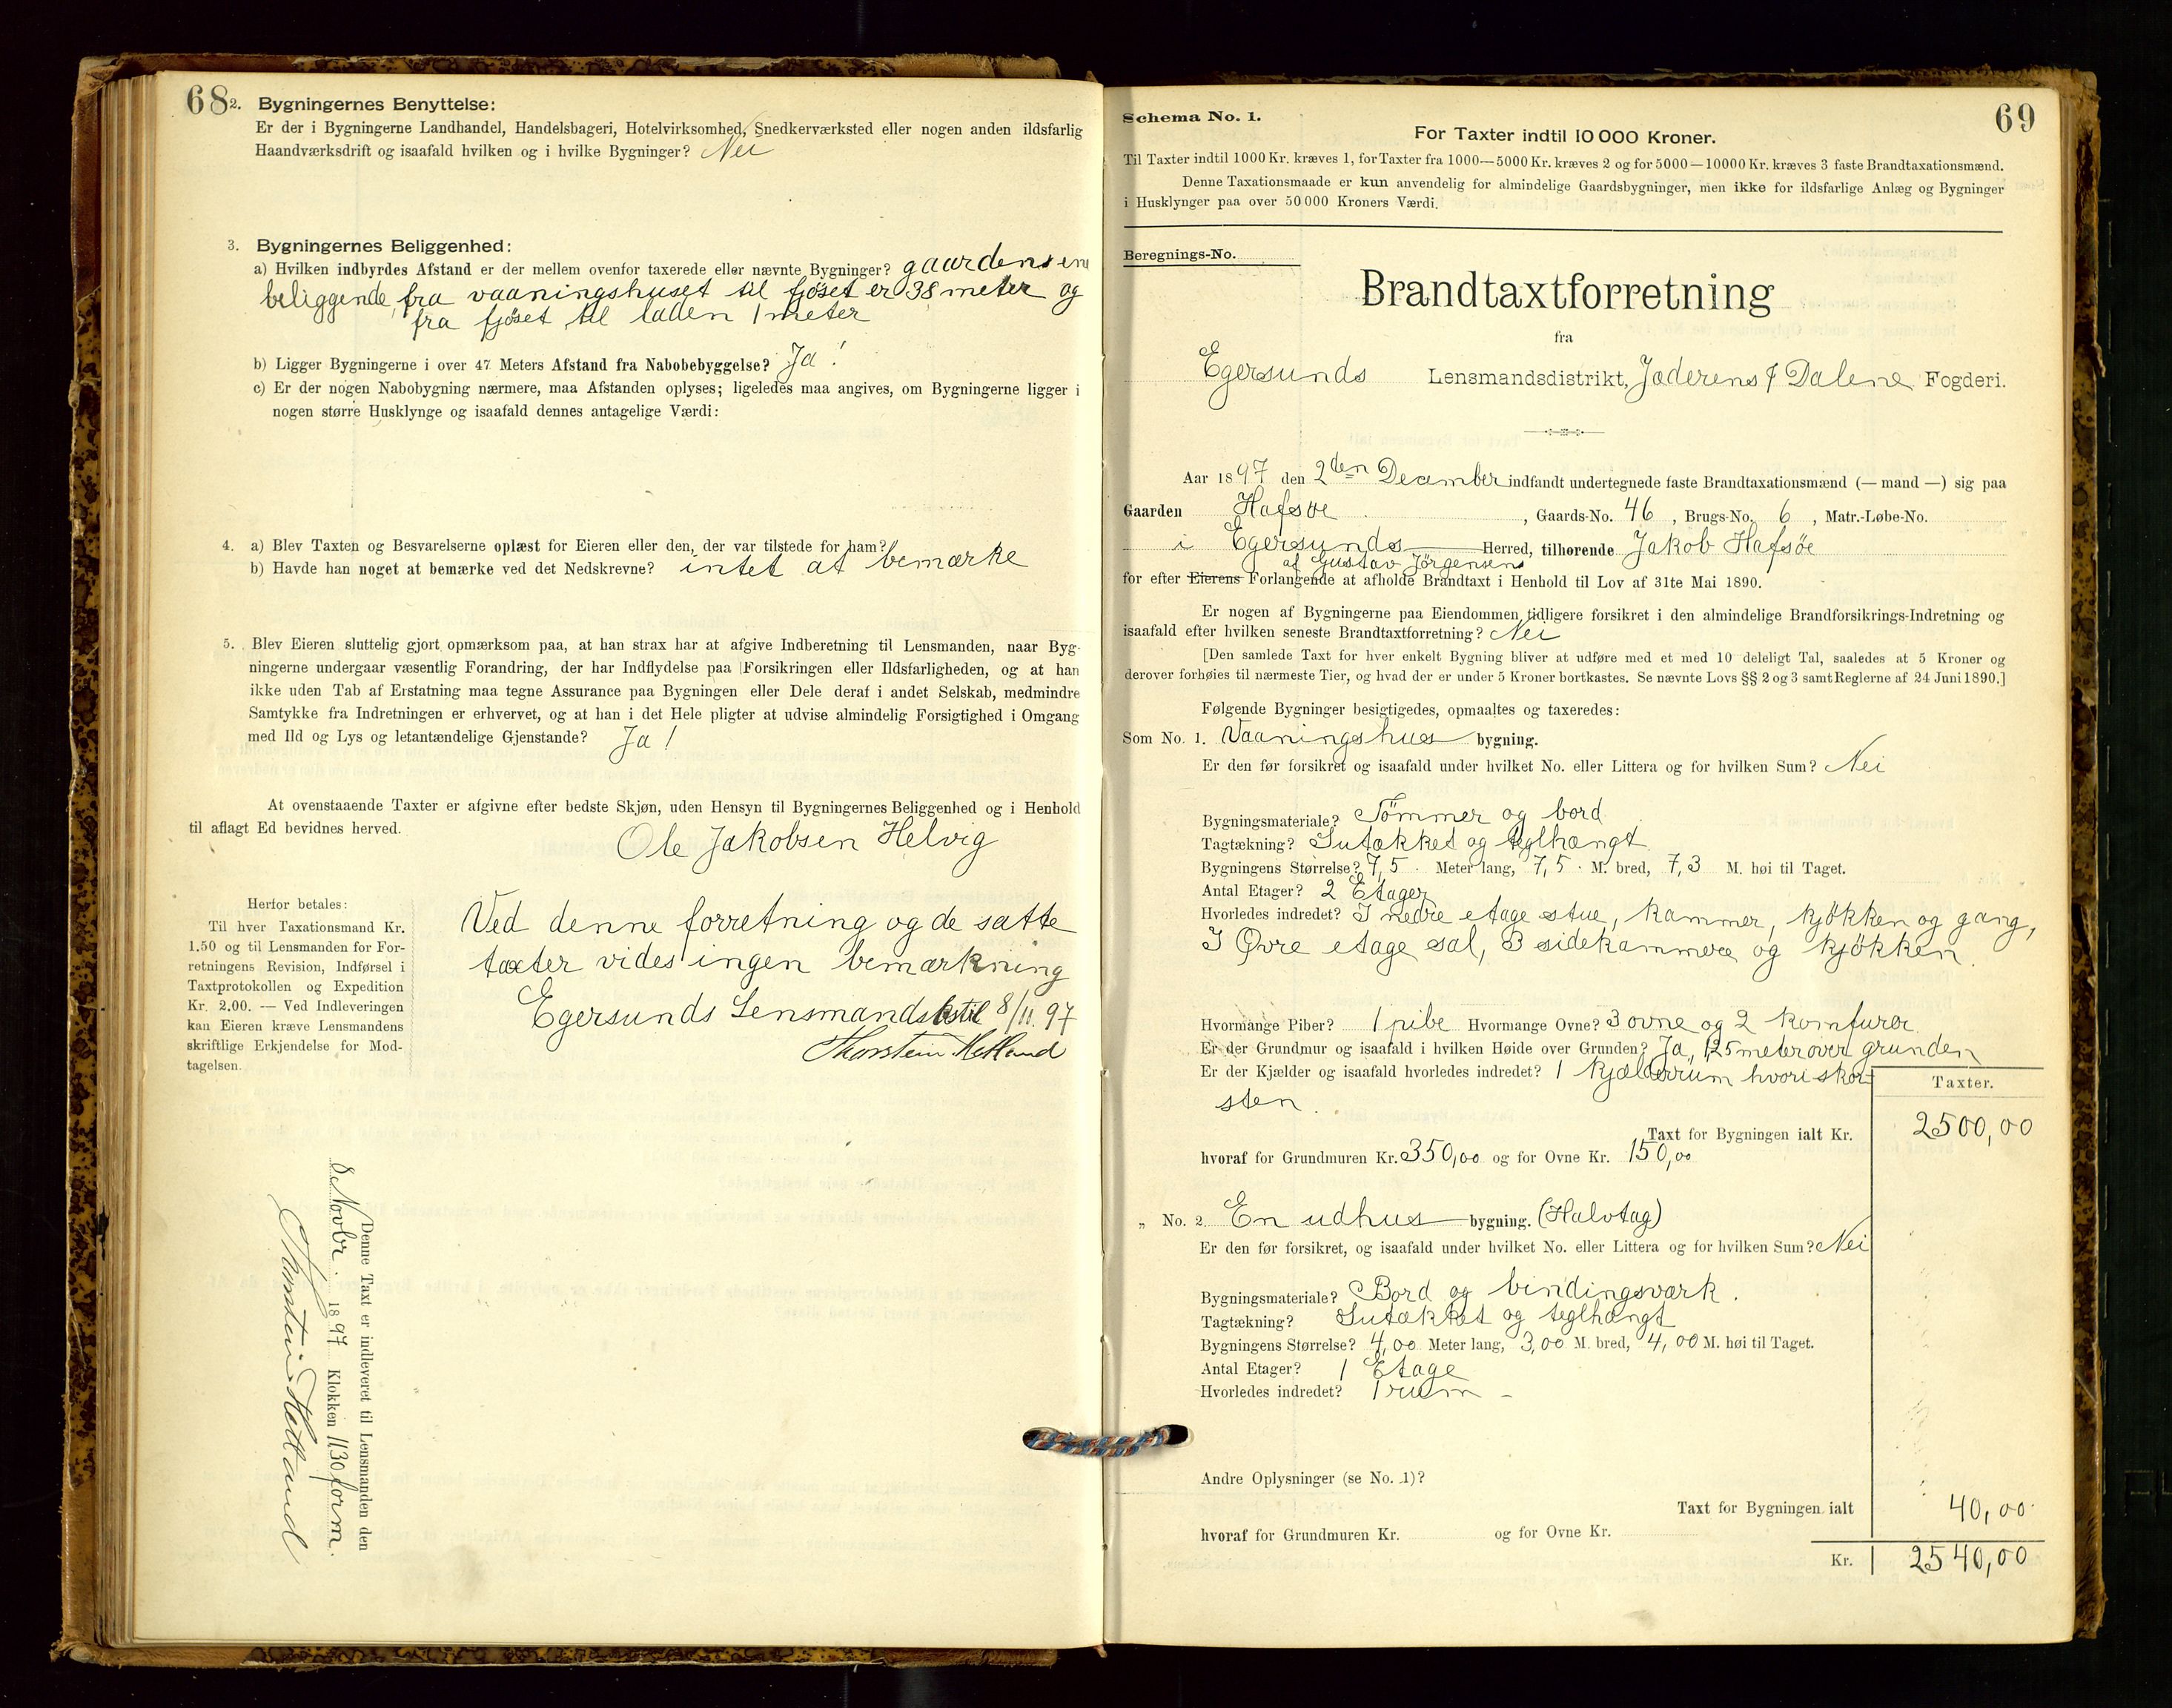 68
2. Bygningernes Benyttelse:
Er der i Bygningerne Landhandel, Handelsbageri, Hotelvirksomhed, Snedkerværksted eller nogen anden ildsfarlig
Haandværksdrift og isaafald hvilken og i hvilke Bygninger? Nei
3. Bygningernes Beliggenhed:
a) Hvilken indbyrdes Afstand er der mellem ovenfor taxerede eller nævnte Bygninger? gaardens en
beliggende fra vaaningshuset til fjöset er 38 meter og
fra fjöset til laden 1 meter
b) Ligger Bygningerne i over 47 Meters Afstand fra Nabobebyggelse? Ja!
c) Er der nogen Nabobygning nærmere, maa Afstanden oplyses; ligeledes maa angives, om Bygningerne ligger i
nogen større Husklynge og isaafald dennes antagelige Værdi:
4. a) Blev Taxten og Besvarelserne oplæst for Eieren eller den, der var tilstede for ham?
b) Havde han noget at bemærke ved det Nedskrevne? intet at bemærke
5. Blev Eieren sluttelig gjort opmærksom paa, at han strax har at afgive Indberetning til Lensmanden, naar Byg-
ningerne undergaar væsentlig Forandring, der har Indflydelse paa Forsikringen eller Ildsfarligheden, og at han
ikke uden Tab af Erstatning maa tegne Assurance paa Bygningen eller Dele deraf i andet Selskab, medmindre
Samtykke fra Indretningen er erhvervet, og at han i det Hele pligter at udvise almindelig Forsigtighed i Omgang
med Ild og Lys og letantændelige Gjenstande? Ja!
At ovenstaaende Taxter er afgivne efter bedste Skjøn, uden Hensyn til Bygningernes Beliggenhed og i Henhold
til aflagt Ed bevidnes herved.
Ole Jakobsen Helvig
Herfor betales:
Til hver Taxationsmand Kr.
1.50 og til Lensmanden for For-
retningens Revision, Indførsel i
Taxtprotokollen og Expedition
Kr. 2.00. — Ved Indleveringen
kan Eieren kræve Lensmandens
skriftlige Erkjendelse for Mod-
tagelsen.
Ved denne forretning og de satte
taxter vides ingen bemærkning
Egersunds Lensmandsbstil 8/11 97
Thorstein Hetland
Denne Taxt er indleveret til Lensmanden den
8 Novbr. 1897 Klokken 1130 form.
Thorstein Hetland
69
Schema No. 1.
For Taxter indtil 10 000 Kroner.
Til Taxter indtil 1000 Kr. kræves 1, for Taxter fra 1000—5000 Kr. kræves 2 og for 5000—10000 Kr. kræves 3 faste Brandtaxationsmænd.
Denne Taxationsmaade er kun anvendelig for almindelige Gaardsbygninger, men ikke for ildsfarlige Anlæg og Bygninger
i Husklynger paa over 50 000 Kroners Værdi.
Beregnings-No.
Brandtaxtforretning
fra
Egersunds Lensmandsdistrikt, Jæderens & Dalene Fogderi.
Aar 1897 den 2den December indfandt undertegnede faste Brandtaxationsmænd (— mand —) sig paa
Gaarden Hafsøe, Gaards-No. 46, Brugs-No. 6, Matr.-Løbe-No.
i Egersunds Herred, tilhørende Jakob Hafsöe
af Gustav Jörgensens
for efter Eierens Forlangende at afholde Brandtaxt i Henhold til Lov af 31te Mai 1890.
Er nogen af Bygningerne paa Eiendommen tidligere forsikret i den almindelige Brandforsikrings-Indretning og
isaafald efter hvilken seneste Brandtaxtforretning? Nei
[Den samlede Taxt for hver enkelt Bygning bliver at udføre med et med 10 deleligt Tal, saaledes at 5 Kroner og
derover forhøies til nærmeste Tier, og hvad der er under 5 Kroner bortkastes. Se nævnte Lovs §§ 2 og 3 samt Reglerne af 24 Juni 1890.]
Følgende Bygninger besigtigedes, opmaaltes og taxeredes:
Som No. 1. Vaaningshus bygning.
Er den før forsikret og isaafald under hvilket No. eller Littera og for hvilken Sum? Nei
Bygningsmateriale? Tömmer og bord
Tagtækning? Sutækket og teglhængt
Bygningens Størrelse? 7,5 Meter lang, 7,5 M. bred, 7,3 M. høi til Taget.
Antal Etager? 2 Etager
Hvorledes indredet? I nedre etage stue, kammer, kjökken og gang,
I Øvre etage sal, 3 sidekammere og kjökken.
Hvormange Piber? 1 pibe Hvormange Ovne? 3 ovne og 2 komfurer
Er der Grundmur og isaafald i hvilken Høide over Grunden? Ja, 1,25 meter over grunden
Er der Kjælder og isaafald hvorledes indredet? 1 kjælderrum hvori skor-
sten.
Taxter.
Taxt for Bygningen ialt Kr. 2500,00
hvoraf for Grundmuren Kr. 350,00 og for Ovne Kr. 150,00
„ No. 2. En udhus bygning. (Halvtag)
Er den før forsikret, og isaafald under hvilket No. eller Littera og for hvilken Sum? Nei
Bygningsmateriale? Bord og bindingsværk.
Tagtækning? Sutækket og teglhængt
Bygningens Størrelse? 4,00 Meter lang, 3,00 M. bred, 4,00 M. høi til Taget.
Antal Etager? 1 Etage
Hvorledes indredet? 1 rum –
Andre Oplysninger (se No. 1)?
Taxt for Bygningen ialt 40,00
hvoraf for Grundmuren Kr. og for Ovne Kr.
Kr. 2540,00